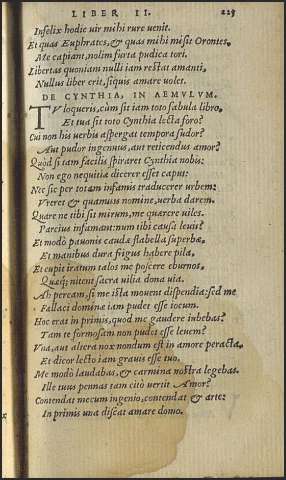 LIBER II. 225
Infelix hodie vir mihi rure venit.
Et quas Euphrates, & quas mihi misit Orontes,
Me capiant, nolim furta pudica tori.
Libertas quoniam nulli iam restat amanti,
Nullus liber erit, siquis amare volet.
DE CYNTHIA, IN AEMVLVM.
TV loqueris, cùm sit iam toto fabula libro,
Et tua sit toto Cynthia lecta foro?
Cui non his verbis aspergat tempora sudor?
Aut pudor ingenuus, aut reticendus amor?
Quòd si tam facilis spiraret Cynthia nobis:
Non ego nequitiæ dicerer esse caput:
Nec sic per totam infamis traducerer urbem:
Vreret & quamuis nomine, verba darem.
Quare ne tibi sit mirum, me quærere uiles.
Parcius infamant: num tibi causa leuis?
Et modò pauonis caudæ flabella superbæ,
Et manibus dura frigus habere pila,
Et cupit iratum talos me poscere eburnos,
Quæq; nitent sacra uilia dona uia.
Ah peream, si me ista mouent dispendia: sed me
Fallaci dominæ iam pudet esse iocum.
Hoc eras in primis, quòd me gaudere iubebas?
Tam te formosam non pudet esse leuem?
Vna, aut altera nox nondum est in amore peracta.
Et dicor lecto iam grauis esse tuo.
Me modò laudabas, & carmina nostra legebas.
Ille tuus pennas tam citò uertit Amor?
Contendat mecum ingenio, contendat & arte:
In primis una discat amare domo.